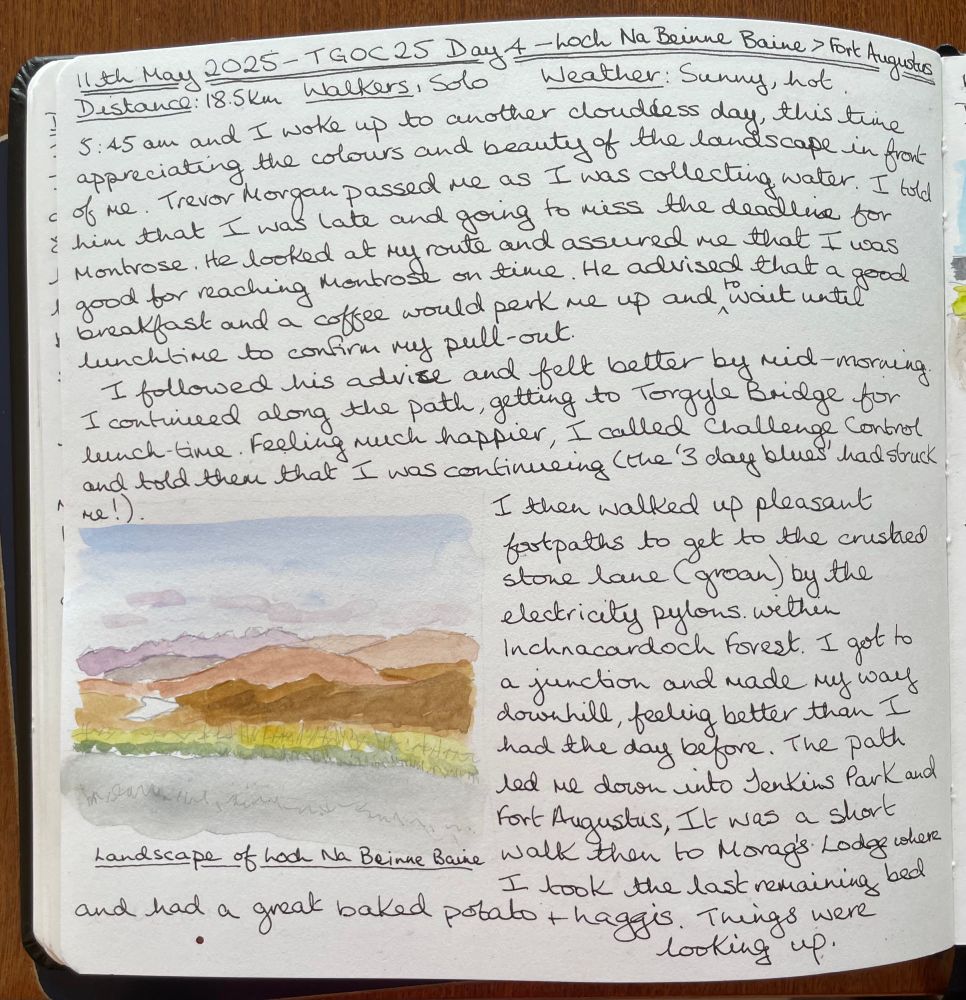 11th May 2025 – TGOC25 Day 4 – Loch Na Beinne Baine > Fort Augustus
Distance: 18.5km Walkers: Solo Weather: Sunny, hot.
5:45 am and I woke up to another cloudless day, this time
appreciating the colours and beauty of the landscape in front
of me. Trevor Morgan passed me as I was collecting water. I told
him that I was late and going to miss the deadline for
Montrose. He looked at my route and assured me that I was
good for reaching Montrose on time. He advised that a good
breakfast and a coffee would perk me up and ^to wait until
lunchtime to confirm my pull-out.
I followed his advice and felt better by mid-morning.
I continued along the path, getting to Torgyle Bridge for
lunch-time. Feeling much happier, I called Challenge Control
and told them that I was continueing (the '3 day blues' had struck
me!).
I then walked up pleasant
footpaths to get to the crushed
stone lane (groan) by the
electricity pylons. within
Inchnacardoch Forest. I got to
a junction and made my way
downhill, feeling better than I
had the day before. The path
led me down into Jenkins Park and
Fort Augustus, It was a short
walk then to Morag's Lodge where
I took the last remaining bed
Landscape of Loch Na Beinne Baine
and had a great baked potato + haggis. Things were
looking up.